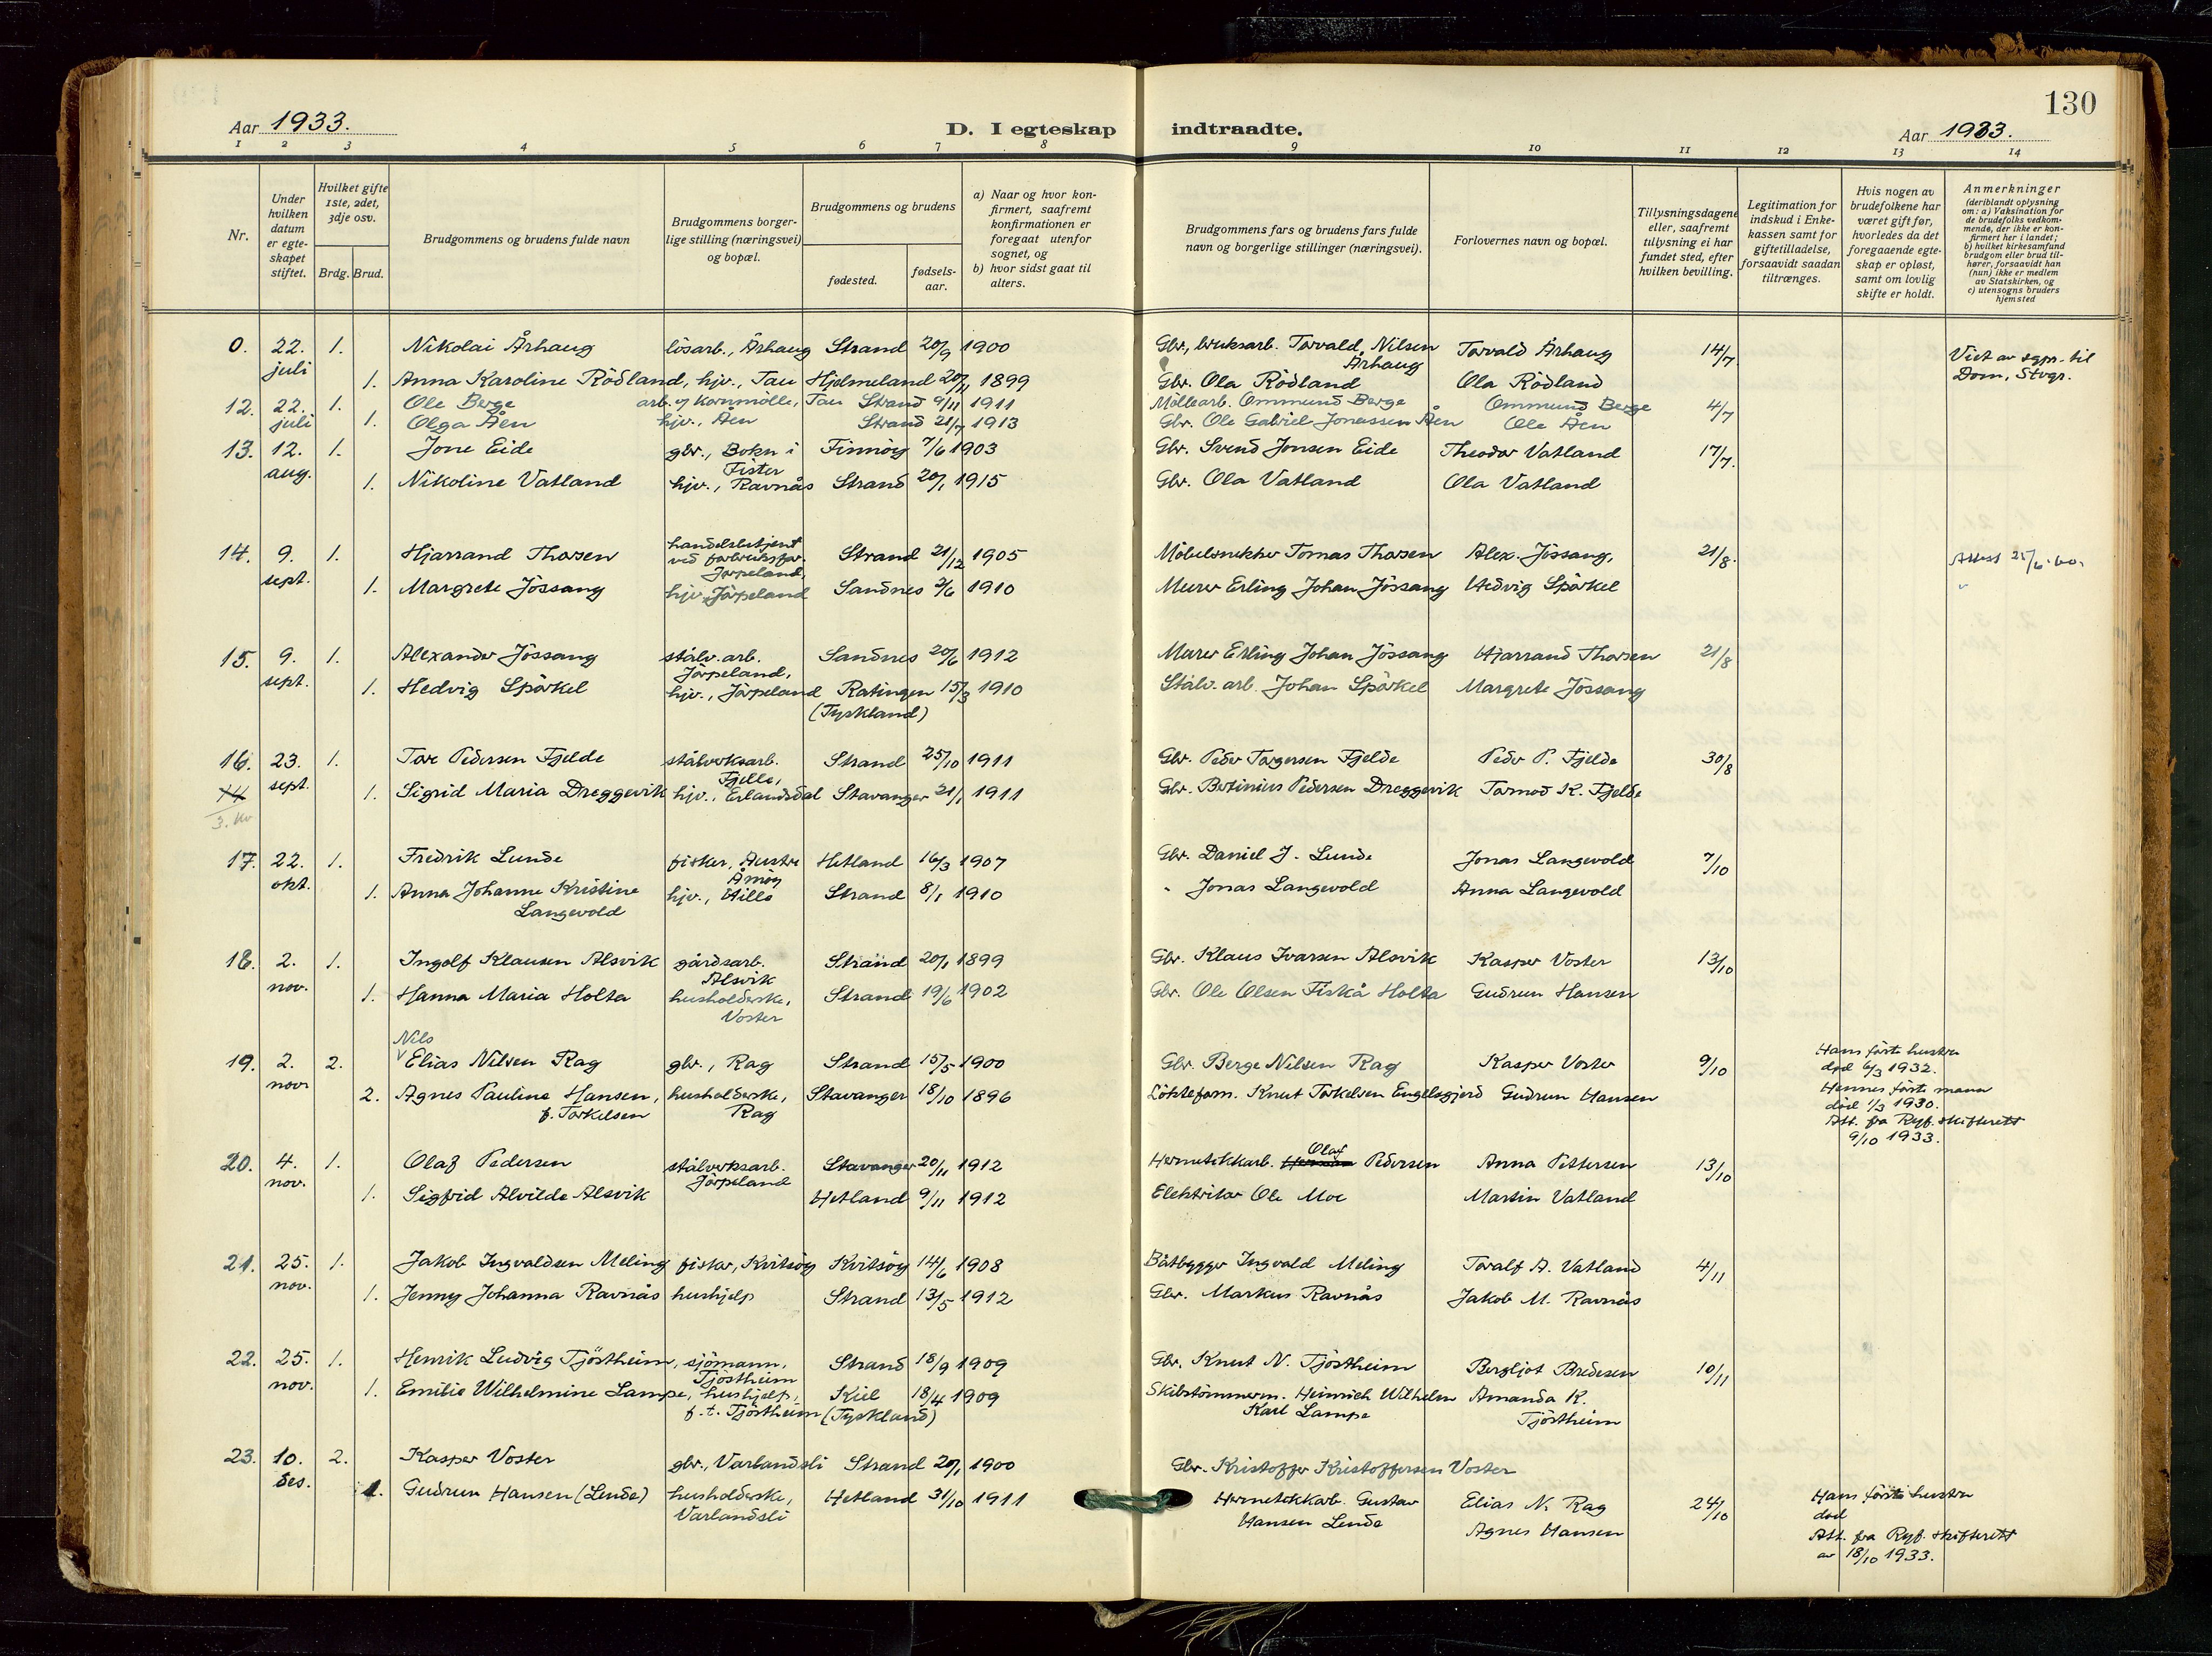 130
Aar 1933.
D. I egteskap indtraadte.
Aar 1933.
1 2 3 4 5 6 7 8 9 10 11 12 13 14
Nr.
Under hvilken datum er egte- skapet stiftet.
Hvilket gifte 1ste, 2det, 3dje osv.
Brdg. Brud.
Brudgommens og brudens fulde navn
Brudgommens borger- lige stilling (næringsvei) og bopæl.
Brudgommens og brudens
fødested.
fødsels- aar.
a) Naar og hvor kon- firmert, saafremt konfirmationen er foregaat utenfor sognet, og
b) hvor sidst gaat til alters.
Brudgommens fars og brudens fars fulde navn og borgerlige stillinger (næringsvei).
Forlovernes navn og bopæl.
Tillysningsdagene eller, saafremt tillysning ei har fundet sted, efter hvilken bevilling.
Legitimation for indskud i Enke- kassen samt for giftetilladelse, forsaavidt saadan tiltrænges.
Hvis nogen av brudefolkene har været gift før, hvorledes da det foregaaende egte- skap er opløst, samt om lovlig skifte er holdt.
Anmerkninger (deriblandt oplysning om: a) Vaksination for de brudefolks vedkom- mende, der ikke er kon- firmert her i landet; b) hvilket kirkesamfund brudgom eller brud til- hører, forsaavidt han (hun) ikke er medlem av Statskirken, og c) utensogns bruders hjemsted
0. 22. juli 1. Nikolai Århaug lösarb., Århaug Strand 20/9 1900 Gbr., bruksarb. Torvald Nilsen Århaug Torvald Århaug 14/7 Viet av sgpr. til Dom, Stvgr.
1. Anna Karoline Rödland, hjv., Tau Hjelmeland 20/11 1899 Gbr. Ola Rödland Ola Rödland
12. 22. juli 1. Ole Berge arb. v/ Kornmölle, Tau Strand 9/11 1911 Möllearb. Ommund Berge Ommund Berge 4/7
1. Olga Åen hjv., Åen Strand 21/7 1913 Gbr. Ole Gabriel Jonassen Åen Ole Åen
13. 12. aug. 1. Jone Eide gbr., Bokn i Fister Finnöy 7/6 1903 Gbr. Svend Jonsen Eide Theodor Vatland 17/7.
1. Nikoline Vatland hjv., Ravnås Strand 20/1 1915 Gbr. Ola Vatland Ola Vatland
14. 9. sept. 1. Hjarrand Thorsen handelsbetjent ved forbruksfor. Jörpeland, Strand 21/12 1905 Möbelsnekker Tomas Thorsen Alex. Jössang, 21/8. Attest 25/6.60.
1. Margrete Jössang hjv., Jörpeland Sandnes 2/6 1910 Murer Erling Johan Jössang Hedvig Spörkel
15. 9. sept. 1. Alexander Jössang stålv. arb. Jörpeland, Sandnes 20/6 1912 Murer Erling Johan Jössang Hjarrand Thorsen 21/8
1. Hedvig Spörkel hjv., Jörpeland Ratingen (Tyskland) 15/3 1910 Stålv. arb. Johan Spörkel Margrete Jössang
16. 23. sept. 1. Tore Pedersen Fjelde stålverksarb. Fjelle, Strand 25/10 1911 Gbr. Peder Torgersen Fjelde Peder P. Fjelde 30/8
14 3. kv 1. Sigrid Maria Dreggevik hjv., Erlandsdal Stavanger 21/1 1911 Gbr. Bertinius Pedersen Dreggevik Tormod K. Fjelde
17. 22. okt. 1. Fredrik Lunde fisker, Austre Åmöy Hetland 16/3 1907 Gbr. Daniel J. Lunde Jonas Langevold 7/10
1. Anna Johanne Kristine Langevold hjv., Hille Strand 8/1 1910 " Jonas Langevold Anna Langevold
18. 2. nov. 1. Ingolf Klausen Alsvik gårdsarb. Alsvik Strand 20/1 1899 Gbr. Klaus Ivarsen Alsvik Kasper Voster 13/10
1. Hanna Maria Holta husholderske, Voster Strand 19/6 1902 Gbr. Ole Olsen Fiskå Holta Gudrun Hansen
19. 2. nov. 2. Nils Elias Nilsen Rag gbr., Rag Strand 15/5 1900 Gbr. Berge Nilsen Rag Kasper Voster 9/10 Hans förste hustru död 6/3 1932.
2. Agnes Pauline Hansen, f. Torkelsen husholderske, Rag Stavanger 18/10 1896 Løktefom. Knut Torkelsen Engelsgjerd Gudrun Hansen Hennes förste mann död 1/3 1930. Att. fra Ryf. skifterett 9/10 1933.
20. 4. nov. 1. Olaf Pedersen stålverksarb. Jörpeland Stavanger 20/11 1912 Hermetikkarb. Olaf Pedersen Anna Pettersen 13/10
1. Sigfrid Alvilde Alsvik Hetland 9/11 1912 Elektriker Ole Moe Martin Vatland
21. 25. nov. 1. Jakob Ingvaldsen Meling fisker, Kvitsöy Kvitsöy 14/6 1908 Båtbygger Ingvald Meling Toralf A. Vatland 4/11
1. Jenny Johanna Ravnås hushjelp Strand 13/5 1912 Gbr. Markus Ravnås Jakob M. Ravnås
22. 25. nov. 1. Henrik Ludvig Tjöstheim, sjömann, Tjöstheim Strand 18/9 1909 Gbr. Knut N. Tjöstheim Bergljot Bredesen 10/11
1. Emilie Wilhelmine Lampe, hushjelp, f. t. Tjöstheim Kiel (Tyskland) 18/4 1909 Skibstömmerm. Heinrich Wilhelm Karl Lampe Amanda K. Tjöstheim
23. 10. des. 2. Kasper Voster gbr., Varlandsli Strand 20/1 1900 Gbr. Kristoffer Kristoffersen Voster
1. Gudrun Hansen (Lende) husholderske, Varlandsli Hetland 31/10 1911 Hermetikkarb. Gustav Hansen Lende Elias N. Rag Agnes Hansen 24/10 Hans förste hustru död Att. fra Ryf. skifterett av 18/10 1933.